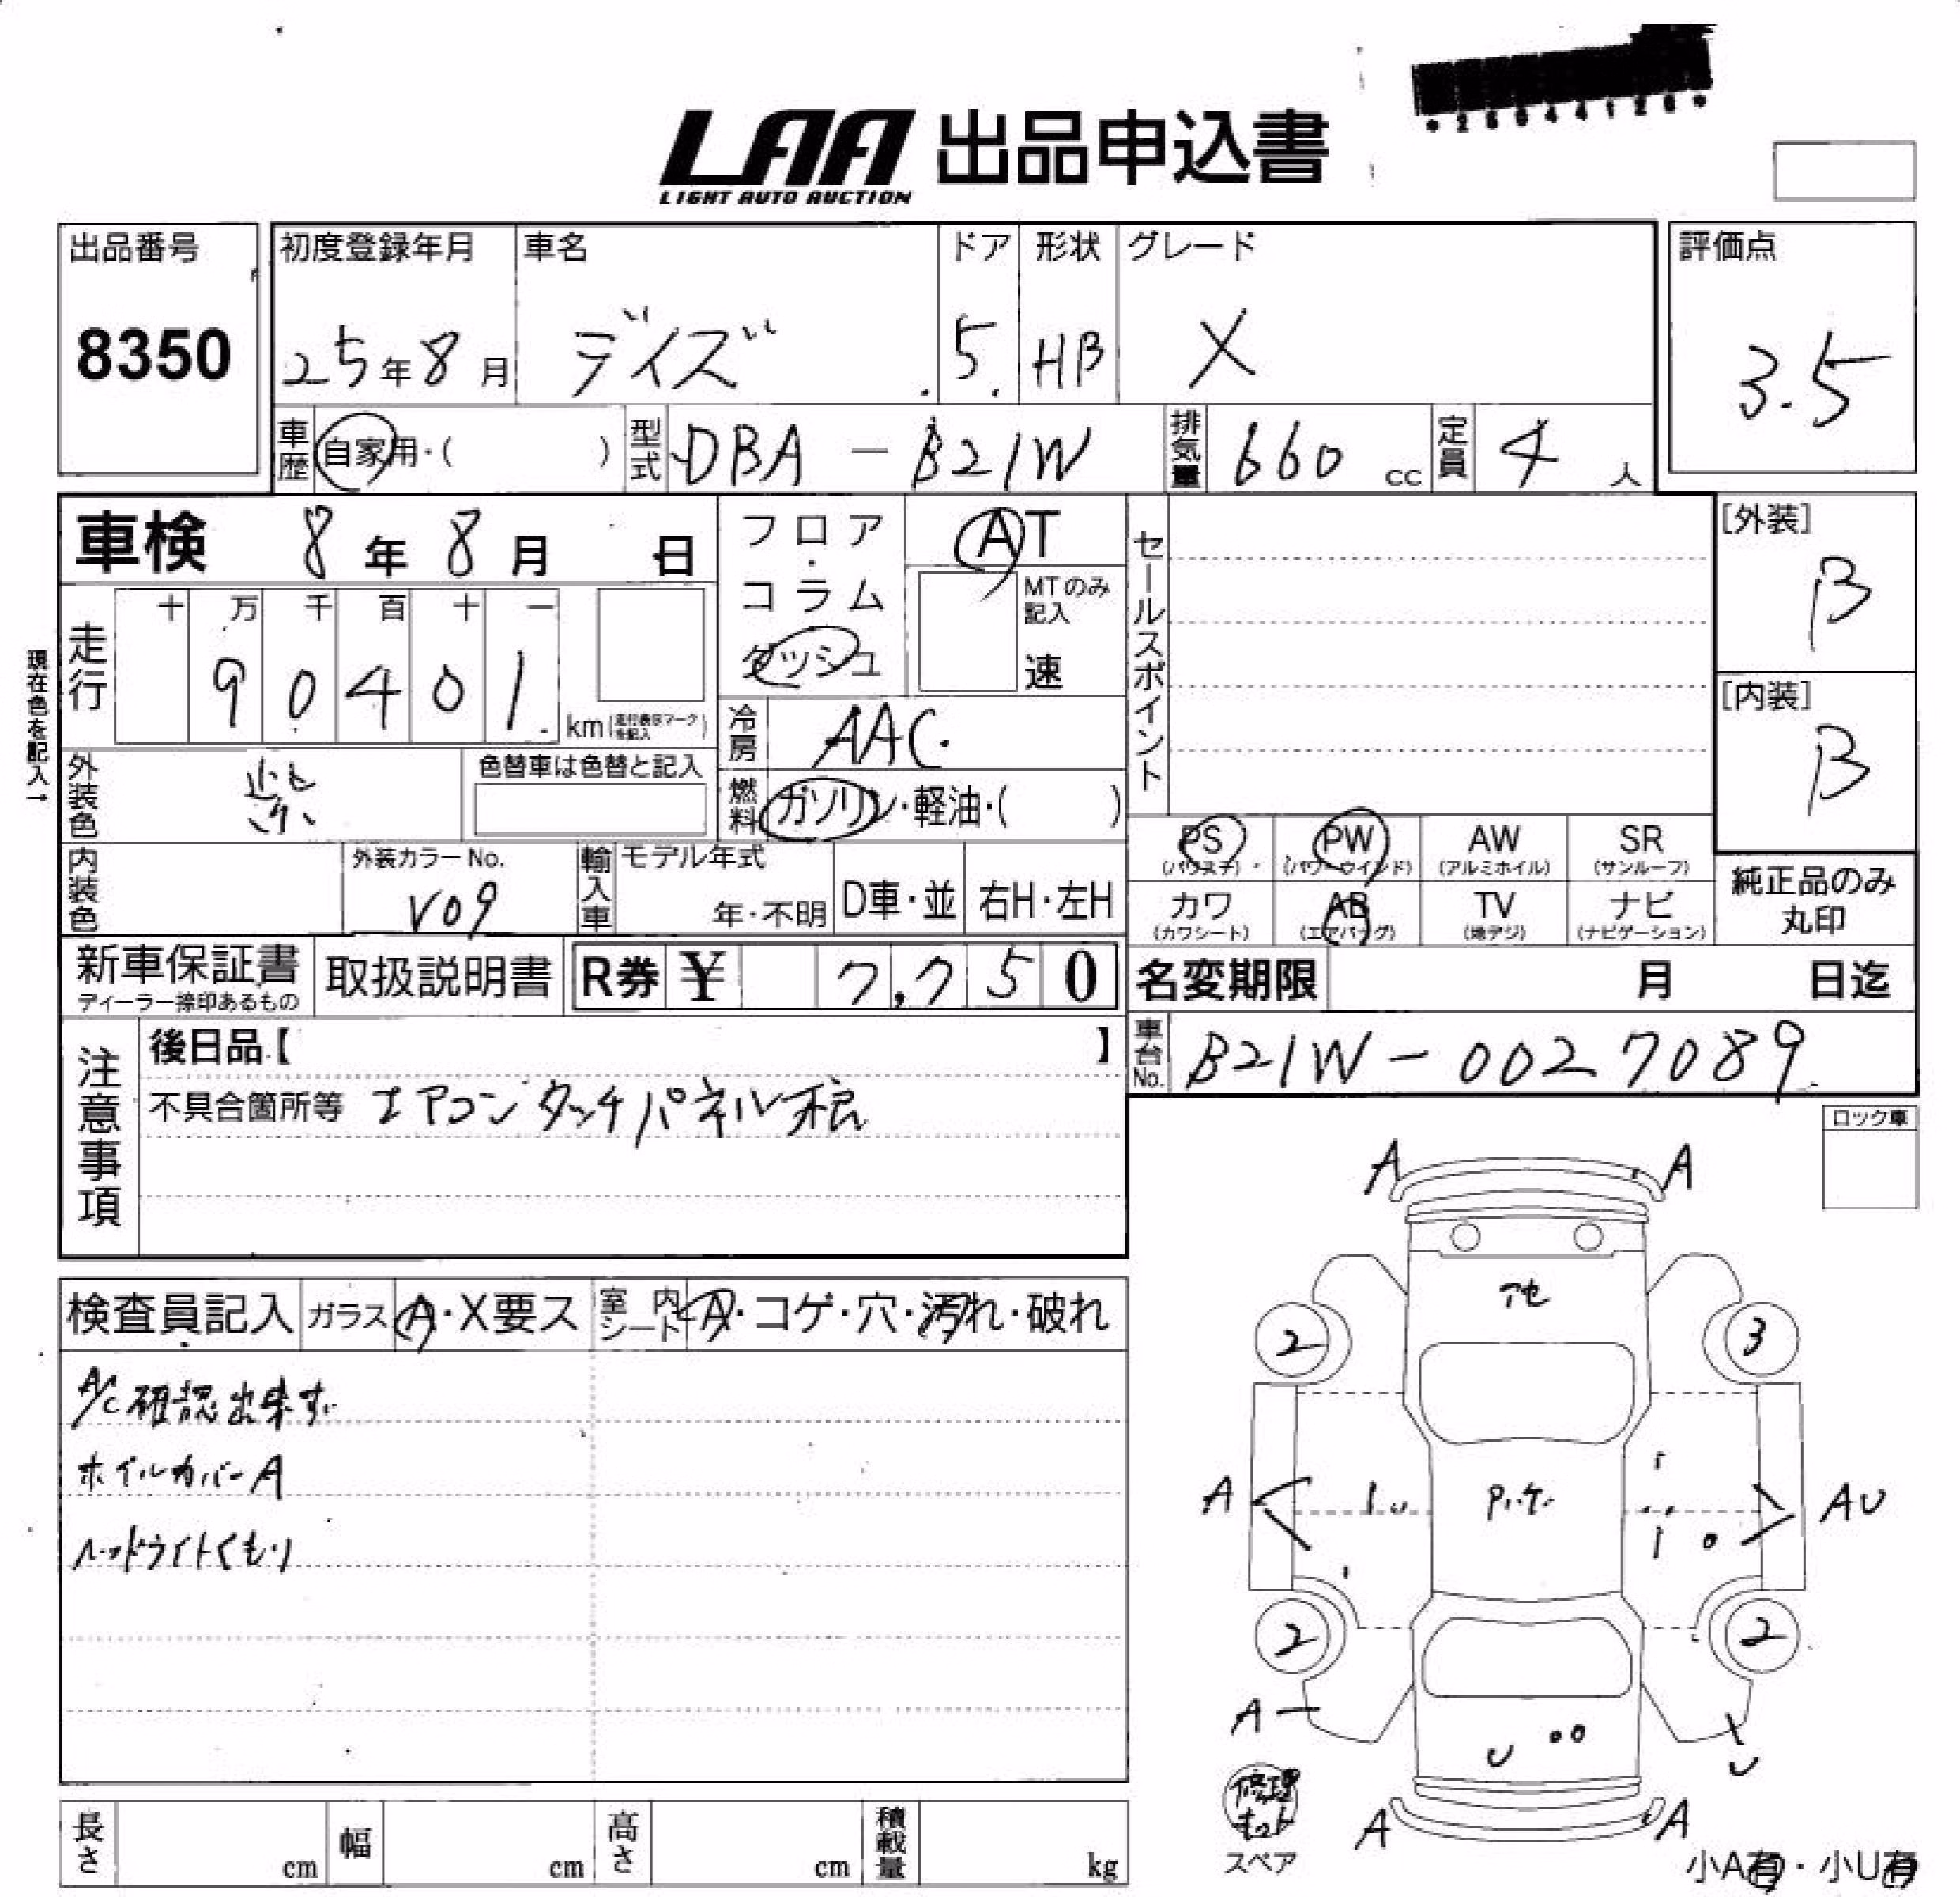 *25044126*
LAA 出品申込書
LIGHT AUTO AUCTION
出品番号
8350
初度登録年月
25年8月
車名
デイズ
ドア
5
形状
HB
グレード
X
評価点
3.5
車歴
自家用・( )
型式
DBA-B21W
排気量
660cc
定員
4人
車検 8年8月 日
フロア・コラム
ダッシュ
AT
MTのみ記入
速
セールスポイント
[外装]
B
[内装]
B
現在色を記入→
走行
十 万 千 百 十 一
9 0 4 0 1
km
冷房
AAC
外装色
紫
色替車は色替と記入
燃料
ガソリン・軽油・( )
PS
(パワステ)
PW
(パワーウインド)
AW
(アルミホイル)
SR
(サンルーフ)
カワ
(カワシート)
AB
(エアバッグ)
TV
(地デジ)
ナビ
(ナビゲーション)
純正品のみ
丸印
内装色
外装カラーNo.
V09
輸入車
モデル年式
年・不明
D車・並
右H・左H
新車保証書
ディーラー捺印あるもの
取扱説明書
R券 ¥ 7,750
名変期限 月 日迄
車台No.
B21W-0027089
注意事項
後日品【 】
不具合箇所等 エアコンタッチパネル不良
ロック車
検査員記入
ガラス
A・X要ス
室内シート
A・コゲ・穴・汚れ・破れ
A/C確認出来ず
ホイルカバーA
ヘッドライトくもり
A A
2 3
A AU
2 2
A
U U
A A
修理キット
スペア
小A有・小U有
長さ cm
幅 cm
高さ cm
積載量 kg